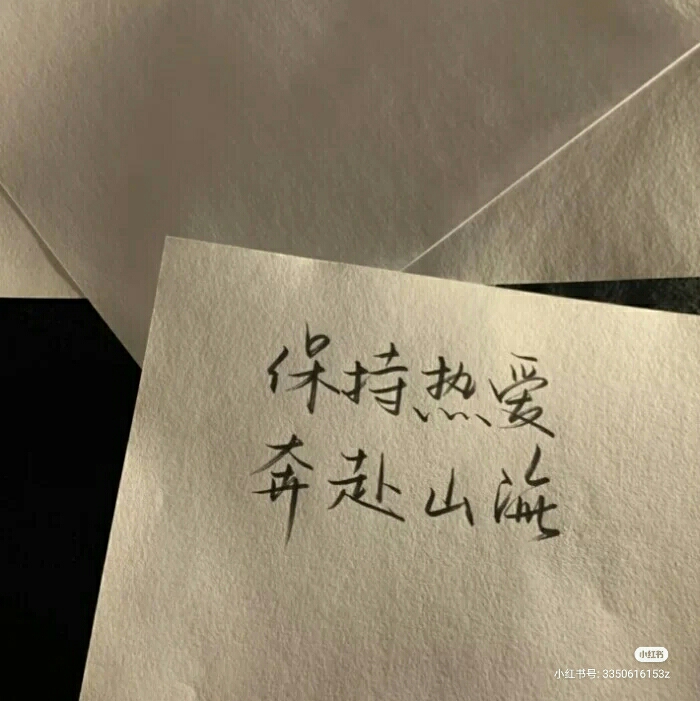 保持热爱
奔赴山海
小红书
小红书号: 3350616153z